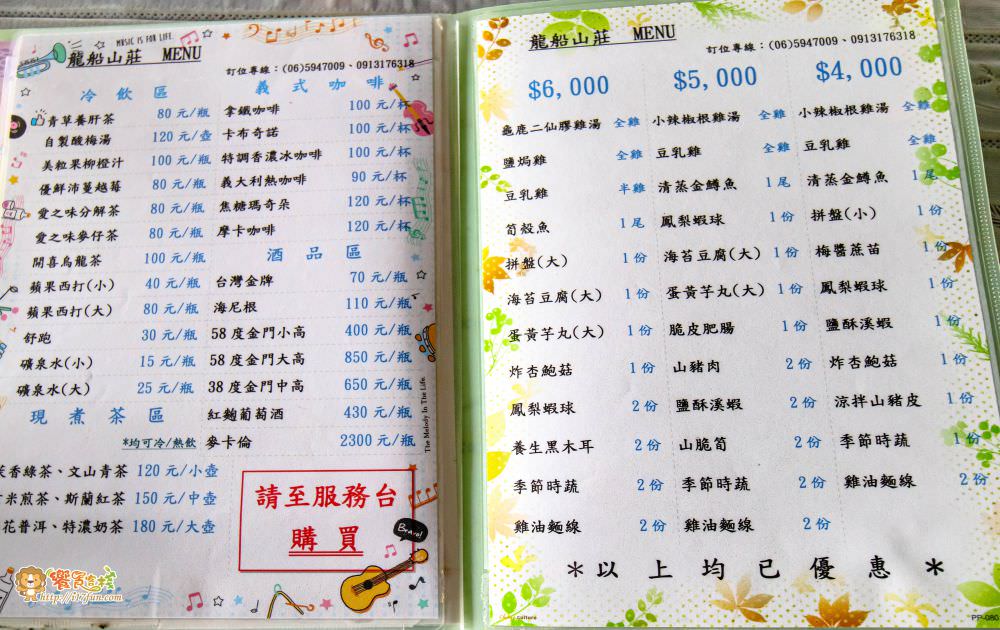 MUSIC IS FOR LIFE.
龍船山莊 MENU
訂位專線：(06)5947009、0913176318
冷飲區
青草養肝茶 80元/瓶
自製酸梅湯 120元/壺
美粒果柳橙汁 100元/瓶
優鮮沛蔓越莓 80元/瓶
愛之味分解茶 80元/瓶
愛之味麥仔茶 80元/瓶
開喜烏龍茶 100元/瓶
蘋果西打(小) 40元/瓶
蘋果西打(大) 80元/瓶
舒跑 30元/瓶
礦泉水(小) 15元/瓶
礦泉水(大) 25元/瓶
現煮茶區
*均可冷/熱飲
香綠茶、文山青茶 120元/小壺
米煎茶、斯蘭紅茶 150元/中壺
花普洱、特濃奶茶 180元/大壺
義式咖啡
拿鐵咖啡 100元/杯
卡布奇諾 100元/杯
特調香濃冰咖啡 100元/杯
義大利熱咖啡 90元/杯
焦糖瑪奇朵 120元/杯
摩卡咖啡 120元/杯
酒品區
台灣金牌 70元/瓶
海尼根 110元/瓶
58度金門小高 400元/瓶
58度金門大高 850元/瓶
38度金門中高 650元/瓶
紅麴葡萄酒 430元/瓶
麥卡倫 2300元/瓶
請至服務台
購買
The Melody In The Life
Bravo!
饗買吉拔
http://i17fun.com
龍船山莊 MENU
訂位專線：(06)5947009、0913176318
$6,000
龜鹿二仙膠雞湯 全雞
鹽焗雞 全雞
豆乳雞 半雞
筍殼魚 1尾
拼盤(大) 1份
海苔豆腐(大) 1份
蛋黃芋丸(大) 1份
炸杏鮑菇 1份
鳳梨蝦球 2份
養生黑木耳 2份
季節時蔬 2份
雞油麵線 2份
$5,000
小辣椒根雞湯 全雞
豆乳雞 全雞
清蒸金鱒魚 1尾
鳳梨蝦球 1份
海苔豆腐(大) 1份
蛋黃芋丸(大) 1份
脆皮肥腸 1份
山豬肉 2份
鹽酥溪蝦 2份
山脆筍 2份
季節時蔬 2份
雞油麵線 2份
$4,000
小辣椒根雞湯 全雞
豆乳雞 全雞
清蒸金鱒魚 1尾
拼盤(小) 1份
梅醬蔗苗 1份
鳳梨蝦球 1份
鹽酥溪蝦 1份
炸杏鮑菇 1份
涼拌山豬皮 1份
季節時蔬 1份
雞油麵線 2份
＊以上均已優惠＊
culture